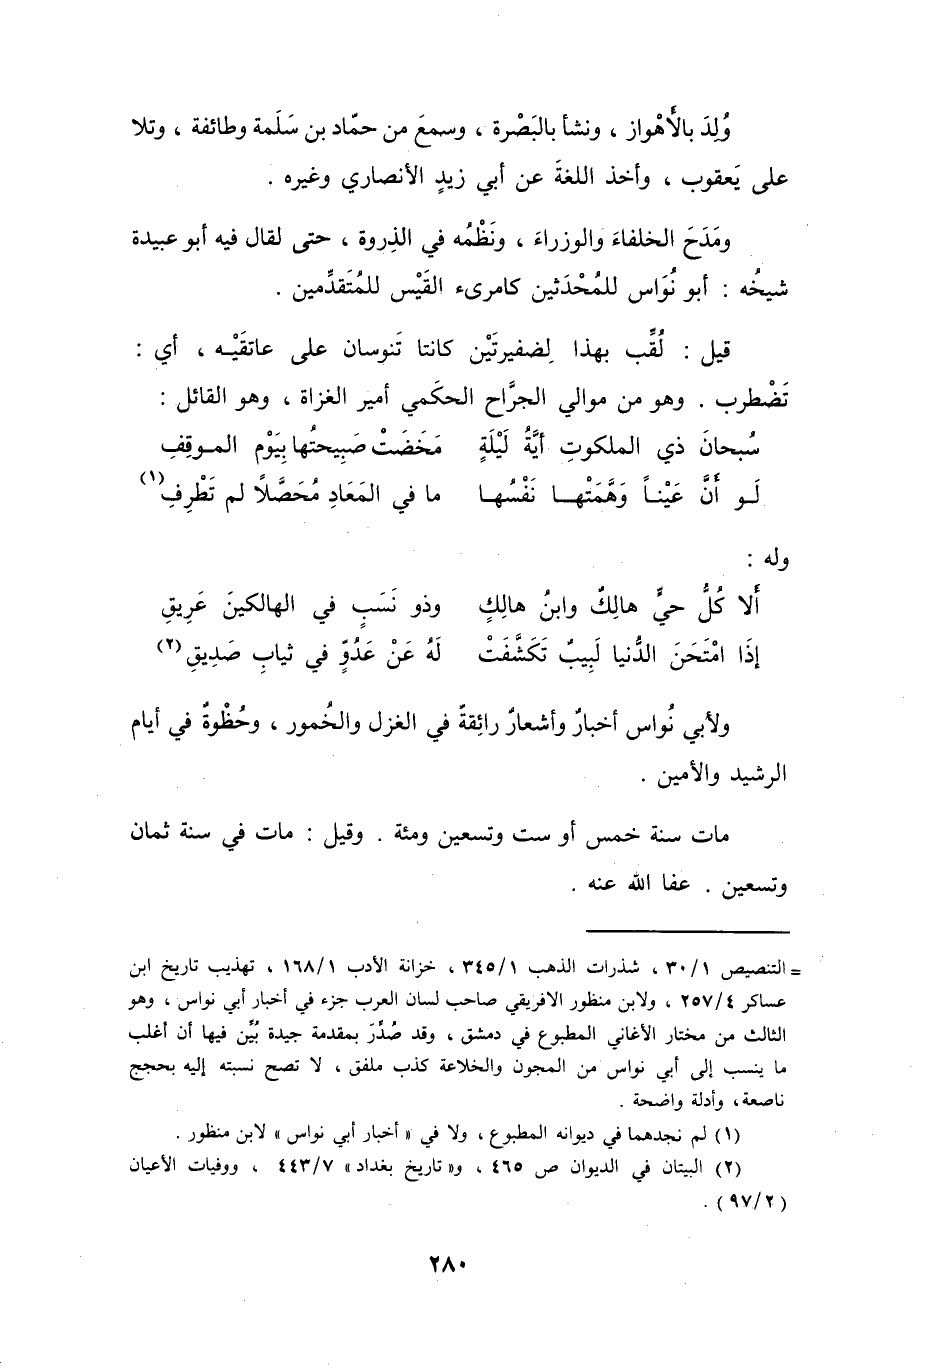 وُلِدَ بالأَهْواز ، ونشأ بالبَصْرة ، وسمعَ من حمّاد بن سَلَمة وطائفة ، وتلا
على يَعقوب ، وأخذ اللغةَ عن أبي زيدٍ الأنصاري وغيره .
ومَدَحَ الخلفاءَ والوزراءَ ، ونَظْمُه في الذِروة ، حتى لقال فيه أبو عبيدة
شيخُه : أبو نُوَاس للمُحْدَثين كامرىء القَيْس للمُتَقدِّمين .
قيل : لُقِّب بهذا لِضفيرتَيْن كانتا تَنوسان على عاتقَيْـه ، أي :
تَضْطرب . وهو من موالي الجرَّاح الحكَمي أمير الغزاة ، وهو القائل :
سُبحانَ ذي الملكوتِ أيَّةُ لَيْلَةٍ مَخَضَتْ صَبِيحتُها بِيَوْم الموقِفِ
لَـو أَنَّ عَيْنـاً وَهَّمَتْهـا نَفْسُهـا ما في المَعَادِ مُحَصَّلاً لم تَطْرِفِ(١)
وله :
أَلا كُلُّ حيٍّ هالِكٌ وابنُ هالِكٍ وذو نَسَبٍ في الهالكينَ عَرِيقِ
إذَا امْتَحَنَ الدُّنيا لَبِيبٌ تَكَشَّفَتْ لَهُ عَنْ عَدُوٍّ في ثيابِ صَدِيقِ(٢)
ولأبي نُواس أخبارٌ وأشعارٌ رائِقةٌ في الغزل والخُمور ، وحُظْوةٌ في أيام
الرشيد والأمين .
مات سنة خمس أو ست وتسعين ومئة . وقيل : مات في سنة ثمان
وتسعين . عفا الله عنه .
= التنصيص ٣٠/١ ، شذرات الذهب ٣٤٥/١ ، خزانة الأدب ١٦٨/١ ، تهذيب تاريخ ابن
عساكر ٢٥٧/٤ ، ولابن منظور الافريقي صاحب لسان العرب جزء في أخبار أبي نواس ، وهو
الثالث من مختار الأغاني المطبوع في دمشق ، وقد صُدِّرَ بمقدمة جيدة بُيِّن فيها أن أغلب
ما ينسب إلى أبي نواس من المجون والخلاعة كذب ملفق ، لا تصح نسبته إليه بحجج
ناصعة ، وأدلة واضحة .
(١) لم نجدهما في ديوانه المطبوع ، ولا في « أخبار أبي نواس » لابن منظور .
(٢) البيتان في الديوان ص ٤٦٥ ، و« تاريخ بغداد » ٤٤٣/٧ ، ووفيات الأعيان
( ٩٧/٢ ) .
٢٨٠